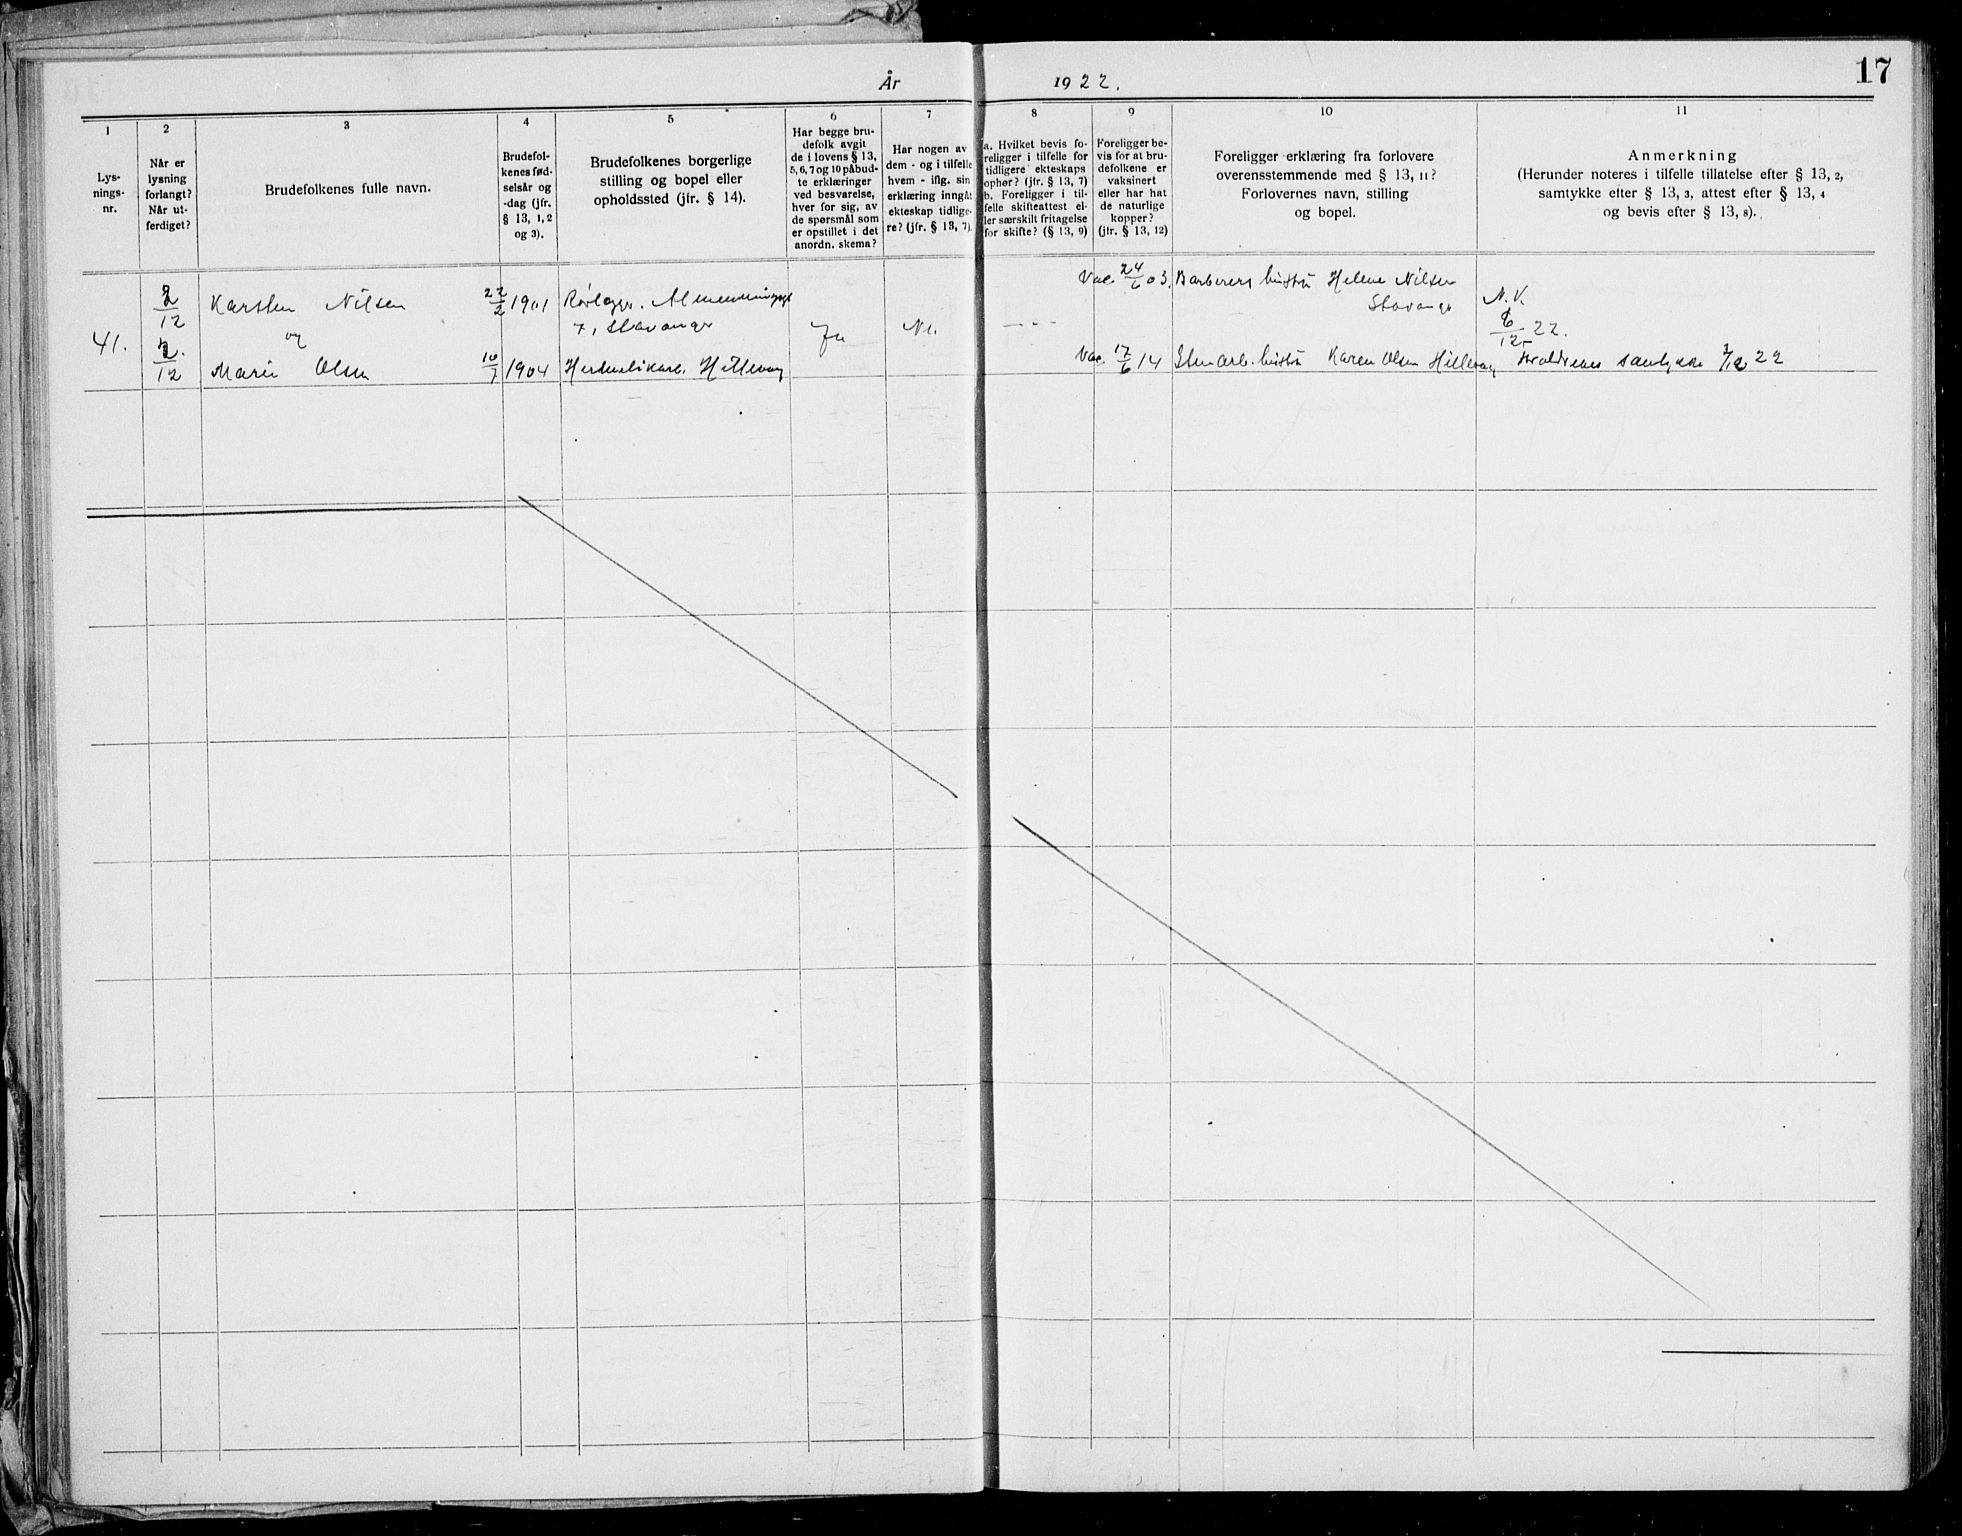 17
År 1922.
1
2
3
4
5
6
7
8
9
10
11
Lys-
nings-
nr.
Når er
lysning
forlangt?
Når ut-
ferdiget?
Brudefolkenes fulle navn.
Brudefol-
kenes fød-
selsår og
-dag (jfr.
§ 13, 1, 2
og 3).
Brudefolkenes borgerlige
stilling og bopel eller
opholdssted (jfr. § 14).
Har begge bru-
defolk avgit
de i lovens § 13,
5, 6, 7 og 10 påbud-
te erklæringer
ved besvarelse,
hver for sig, av
de spørsmål som
er opstillet i det
anordn. skema?
Har nogen av
dem - og i tilfelle
hvem - iflg. sin
erklæring inngåt
ekteskap tidlige-
re? (jfr. § 13, 7)
a. Hvilket bevis fo-
religger i tilfelle for
tidligere ekteskaps
ophør? (jfr. § 13, 7)
b. Foreligger i til-
felle skifteattest el-
ler særskilt fritagelse
for skifte? (§ 13, 9)
Foreligger be-
vis for at bru-
defolkene er
vaksinert
eller har hat
de naturlige
kopper?
(jfr. § 13, 12)
Foreligger erklæring fra forlovere
overensstemmende med § 13, 11?
Forlovernes navn, stilling
og bopel.
Anmerkning
(Herunder noteres i tilfelle tillatelse efter § 13, 2,
samtykke efter § 13, 3, attest efter § 13, 4
og bevis efter § 13, 8).
41.
2/12
2/12
Karsten Nilsen
og
Marie Olsen
22/2 1901
10/7 1904
Rørlegger,
7, Stavanger
Hillevåg
Ja
Nei
- - -
Vac. 24/6 03.
Vac. 17/6 14
Barberers hustru Helene Nilsen
Stavanger
hustru Karen Olsen Hillevåg
N. K.
6/12 22.
Foreldrenes samtykke 2/12 22